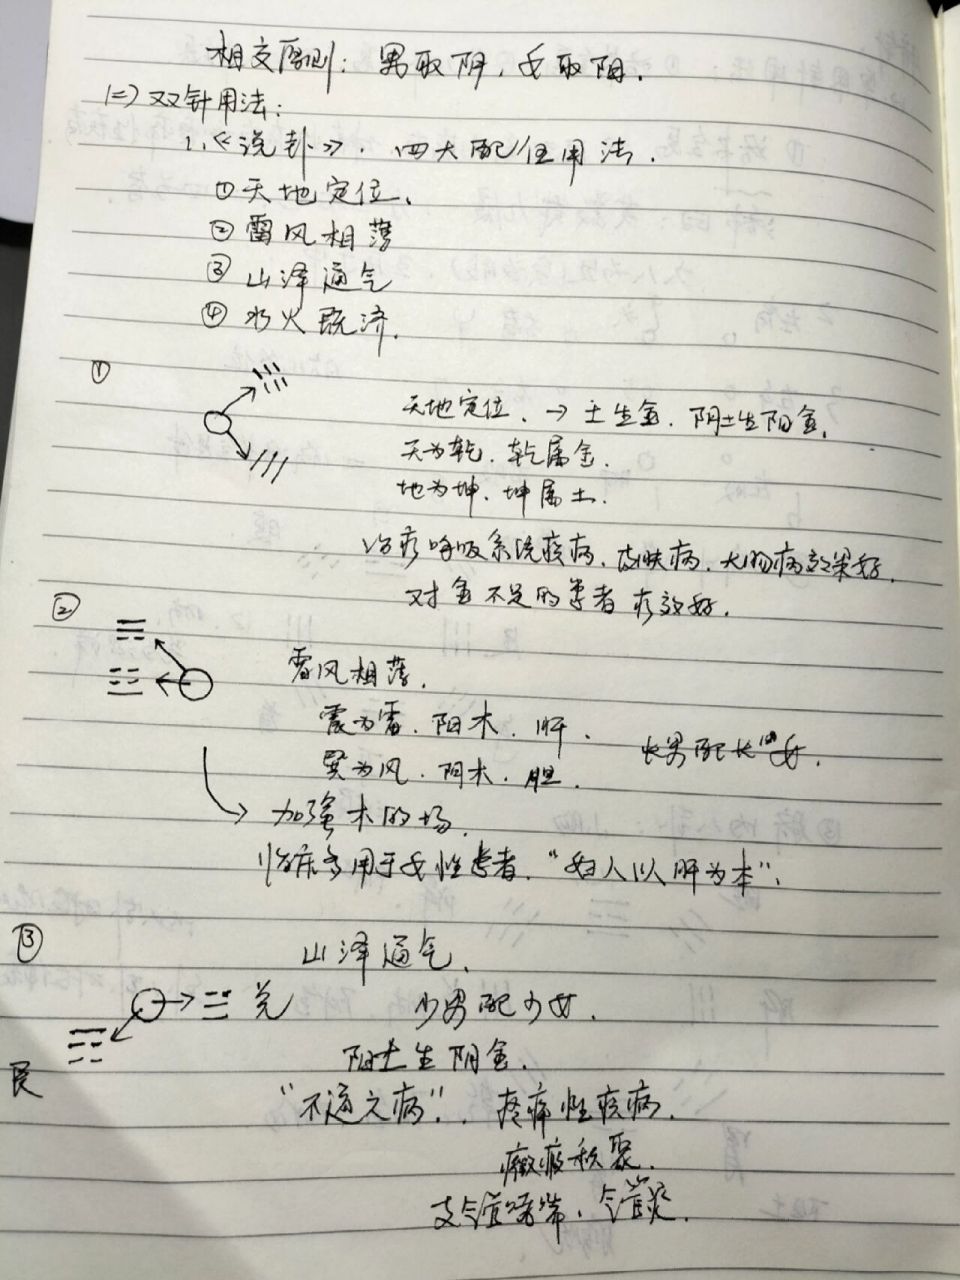 相交原则：男取阴，女取阳．
(二)双针用法：
1.《说卦》．四大配伍用法．
①天地定位．
②雷风相薄
③山泽通气
④水火既济．
①
天地定位．→土生金．阴土生阳金．
天为乾．乾属金．
地为坤．坤属土．
治疗呼吸系统疾病．皮肤病．大肠病效果好．
对金不足的患者疗效好．
②
雷风相薄．
震为雷．阳木．肝．
长男配长女．
巽为风．阴木．胆．
加强木的场．
临床多用于女性患者．“妇人以肝为本”．
③
山泽通气．
兑
少男配少女．
艮
阳土生阴金．
“不通之病”．疼痛性疾病．
癥瘕积聚．
支气管哮喘．气管炎．